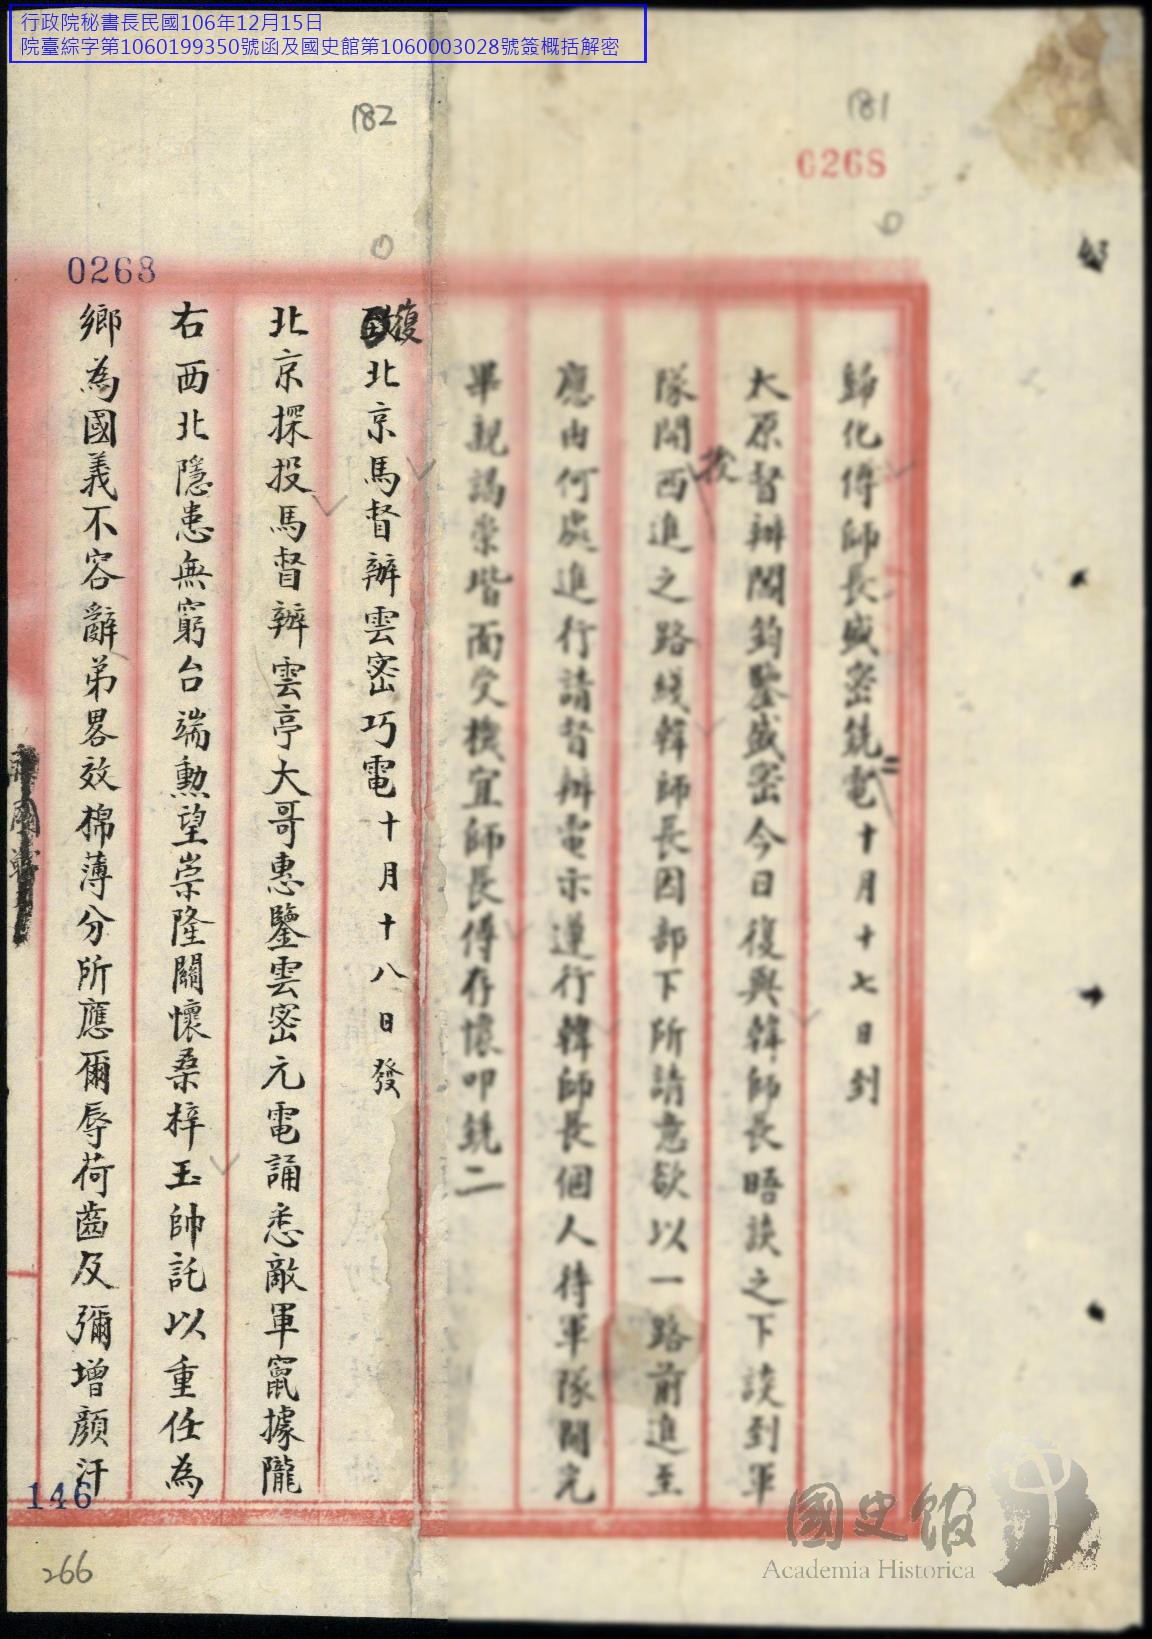 行政院秘書長民國106年12月15日
院臺綜字第1060199350號函及國史館第1060003028號簽概括解密
181
0268
歸化傅師長盛密銑電十月十七日到
太原督辦閻鈞鑒盛密今日復與韓師長晤談之下談到軍
隊開西進之路綫韓師長因部下所請意欲以一路前進至
應由何處進行請督辦電示遵行韓師長個人待軍隊開完
畢親謁崇堦面受機宜師長傅存懷叩銑二
182
0268
復北京馬督辦雲密巧電十月十八日發
北京探投馬督辦雲亭大哥惠鑒雲密元電誦悉敵軍竄據隴
右西北隱患無窮台端勳望崇隆關懷桑梓玉帥託以重任為
鄉為國義不容辭弟畧效棉薄分所應爾辱荷齒及彌增顏汗
146
266
國史館
Academia Historica